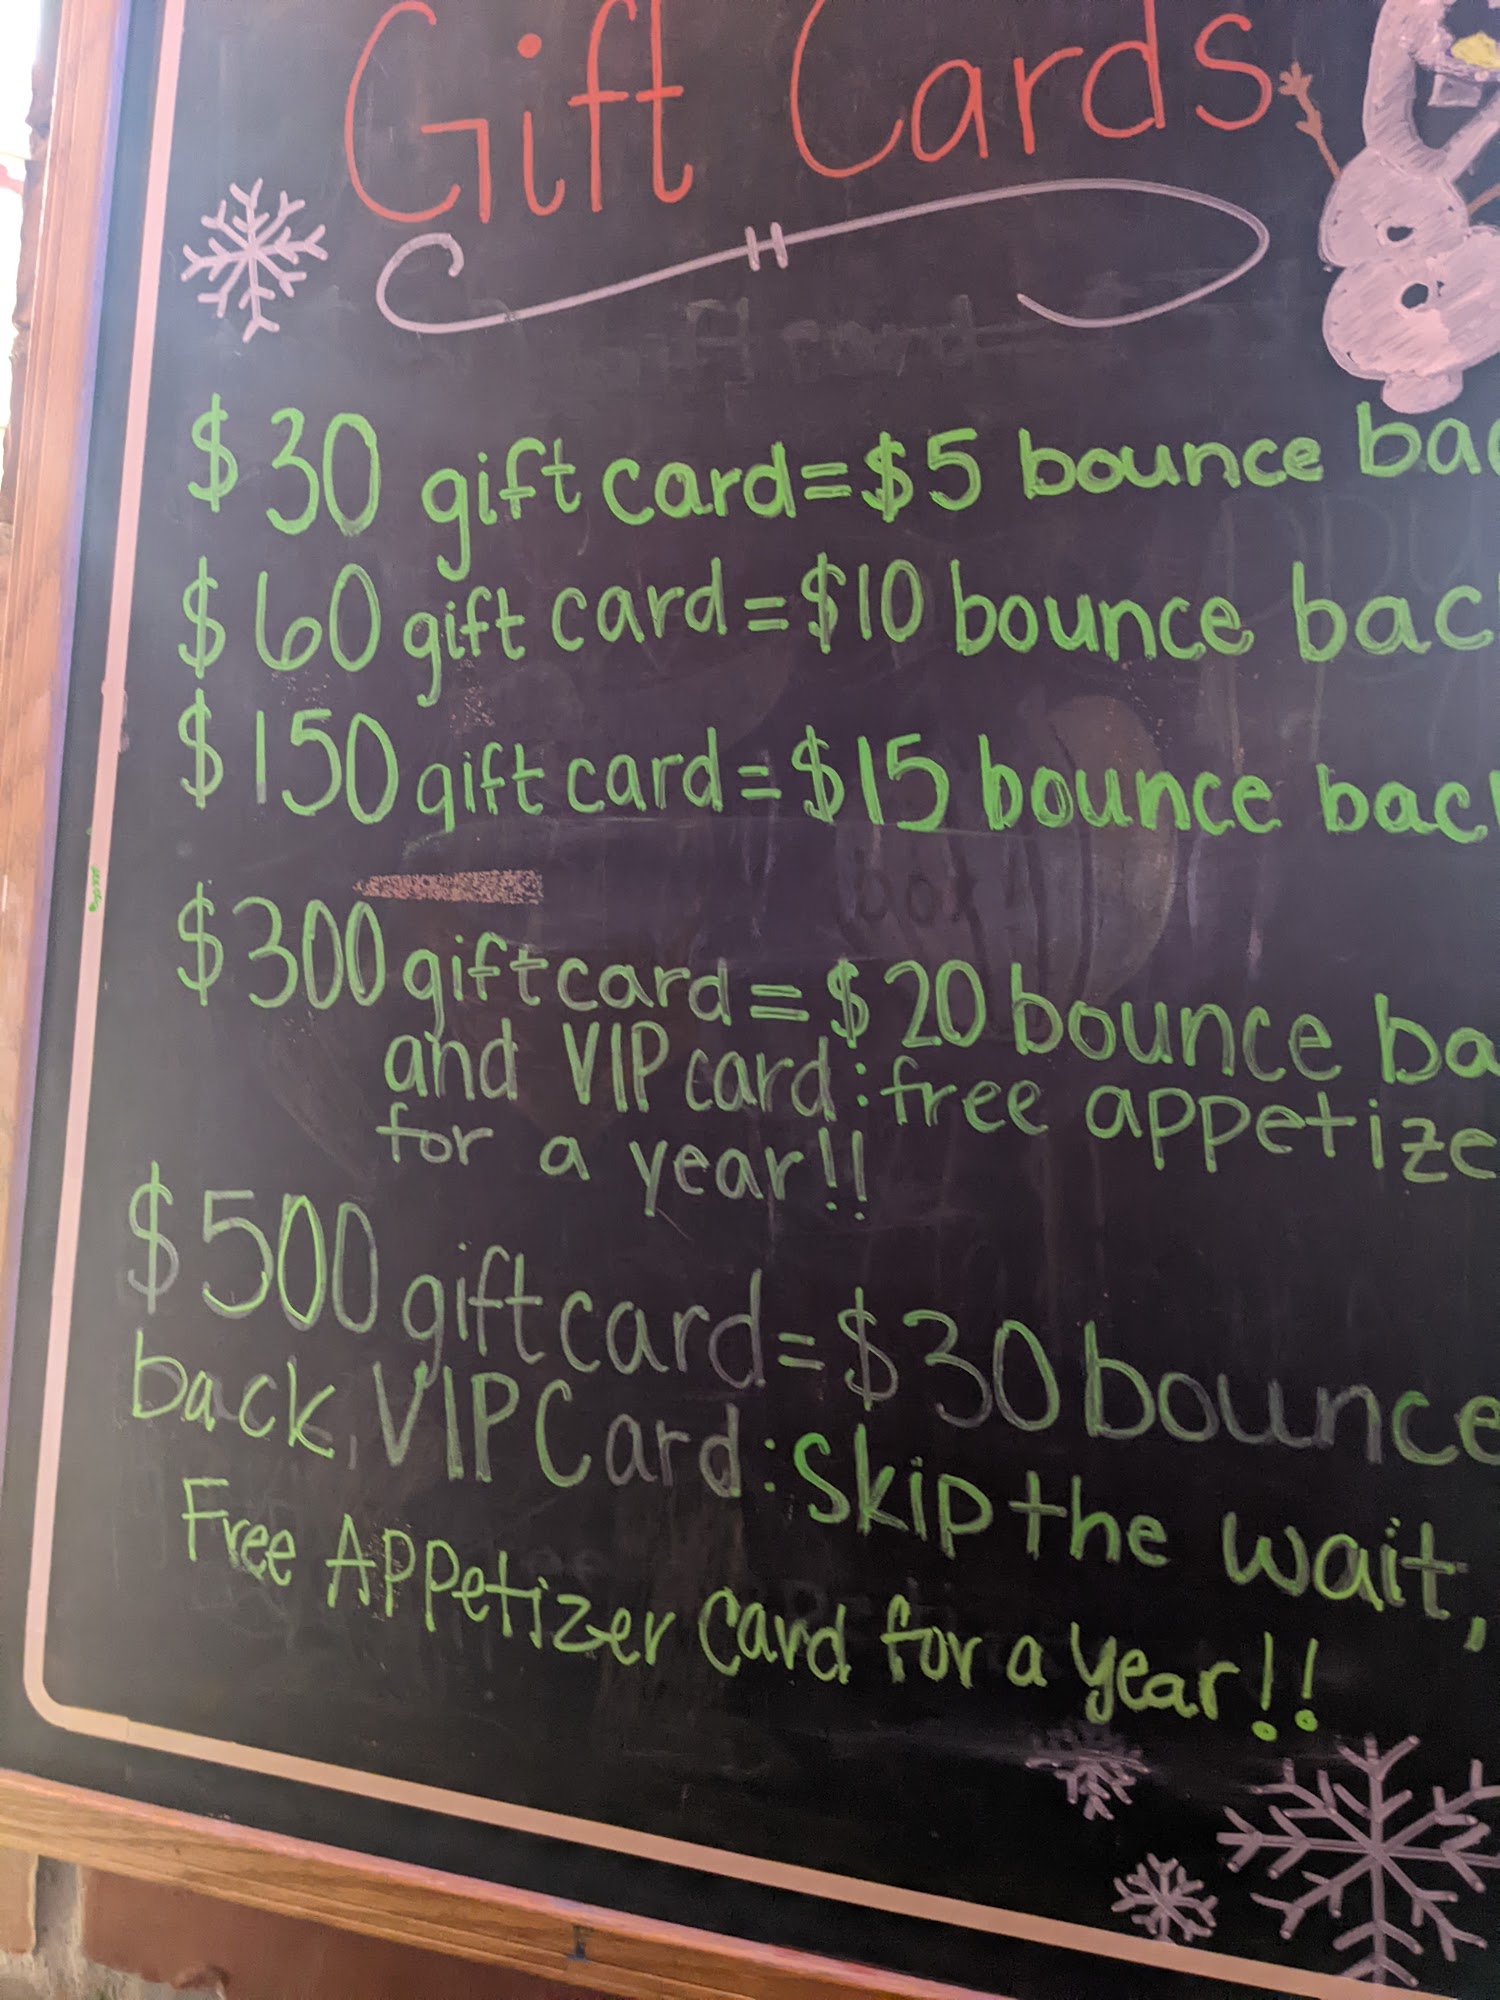 Gift Cards
$30 gift card=$5 bounce bac
$60 gift card=$10 bounce bac
$150 gift card=$15 bounce back
$300 gift card=$20 bounce ba
and VIP card: free appetize
for a year!!
$500 gift card=$30 bounce
back, VIP Card: Skip the wait,
Free Appetizer Card for a year!!